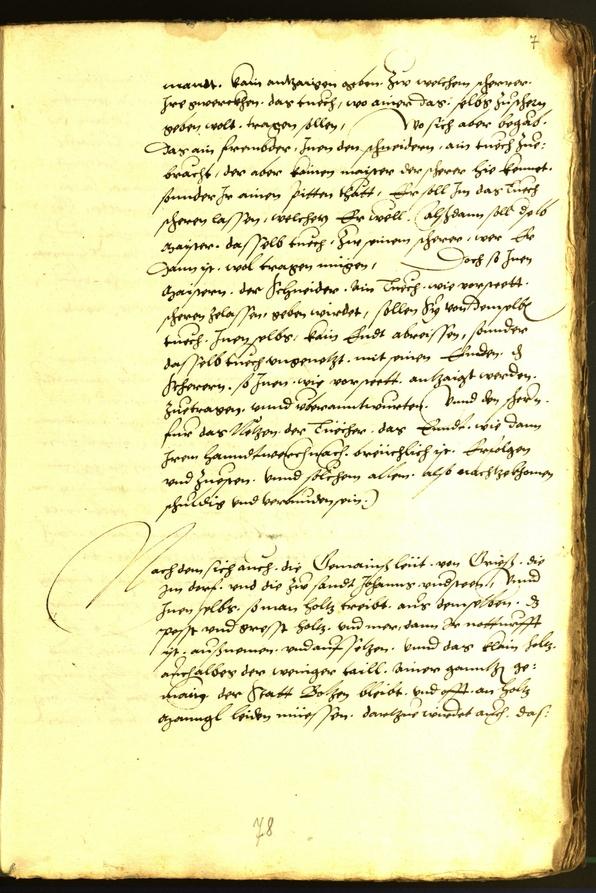 7
mandt. kain anzaigen geben. Zw welchem scherer.
Ire gwerckhen. das tuech, wo ainer das. selbs zuschern
geben wolt. tragen sollen, Wo sich aber begäb.
das ain frembder, Inen den schneidern, ain tuech zue:
bracht, der aber kainen maister der scherer hie kennet.
sonder Ir ainen pitten thätt, Er soll Im das Tuech
scheren lassen, welchem Er well. Alsdann soll
Maister. dasselb tuech, Zw einem scherer, wer Er
dann ist. wol tragen mügen, Doch so Inen
Maistern. der Schneider. ain Tuech. wie vorsteett.
scheren zelassen, geben wierdet, sollen Sy von demselben
tuech. Inen selbs, kain Endt abreissen, sonder
dasselb tuech ungenetzt. mit seinen Enden. den
Scherern. so Inen. wie vorsteett. anzaigt werden.
Zuetragen. unnd uberanntwurten. Unnd den schern.
fur das Netzen der Tuecher. das Enndt. wie dann
Irem hanndtwerch nach. breuchlich ist. Ervolgen
und zuesteen. unnd solichem allem. also nachzekhomen
schuldig und verpunden sein.
Nachdem sich auch. die Gemainsleut. von Griess. die
Im dorf. und die Zw sandt Johanns. Unnd
Inen selbs. so man holtz treibt. aus demselben. das
pesst und gresst holtz. und mer, dann Ir notturfft
ist. ausnemen. und aufsetzen. unnd das klain holtz.
auch albes der weniger taill. Ainer ganntzen ge:
main der Statt Botzen bleibt. und offt. an holtz
Manngl leiden müessen. dartzue wirdet auch. das:
78